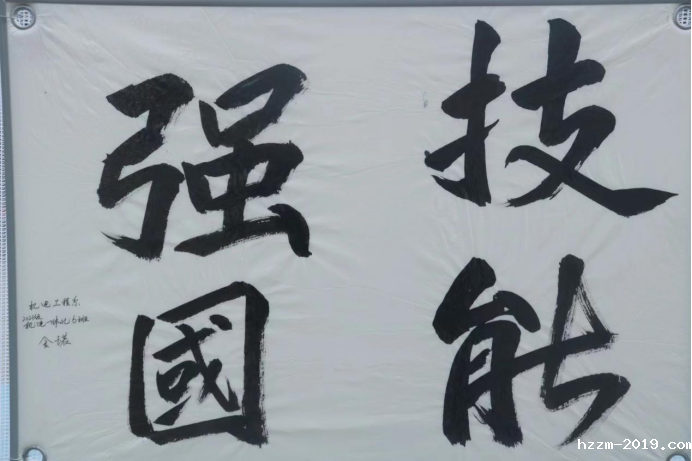 技能
强國
机电工程系
机电一体化5班
金诺
hzzm-2019.com